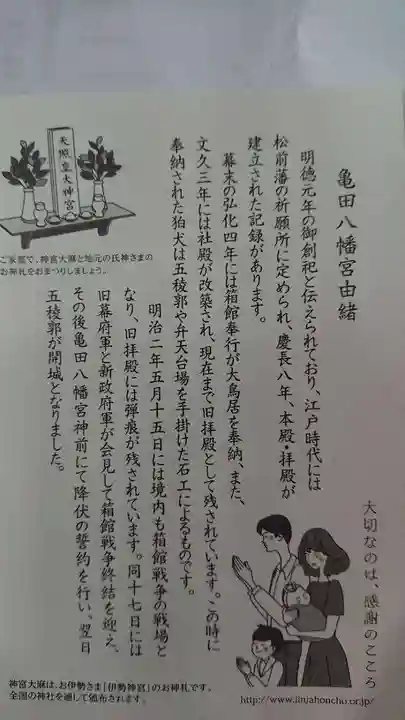 亀田八幡宮由緒
明徳元年の御創祀と伝えられており、江戸時代には
松前藩の祈願所に定められ、慶長八年、本殿・拝殿が
建立された記録があります。
幕末の弘化四年には箱館奉行が大鳥居を奉納、また、
文久三年には社殿が改築され、現在まで旧拝殿として残されています。この時に
奉納された狛犬は五稜郭や弁天台場を手掛けた石工によるものです。
明治二年五月十五日には境内も箱館戦争の戦場と
なり、旧拝殿には弾痕が残されています。同十七日には
旧幕府軍と新政府軍が会見して箱館戦争終結を迎え、
その後亀田八幡宮神前にて降伏の誓約を行い、翌日
五稜郭が開城となりました。
天照皇大神宮
ご家庭で、神宮大麻と地元の氏神さまの
お神札をおまつりしましょう。
大切なのは、感謝のこころ
神宮大麻は、お伊勢さま「伊勢神宮」のお神札です。
全国の神社を通して頒布されます。
http://www.jinjahoncho.or.jp/